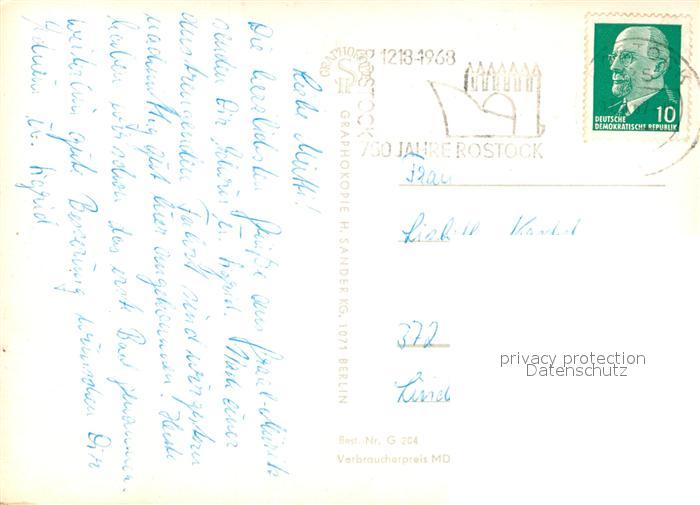 Liebe Mutti!
Die herzlichsten Grüße aus Graal-Müritz
senden Dir Achim u. Sigrid. Nach einer
anstrengenden Fahrt sind wir gestern
nachmittag gut hier angekommen. Heute
haben wir schon das erste Bad genommen.
Weiterhin gute Besserung wünschen Dir
Achim u. Sigrid
GRAPHOKOPIE H. SANDER KG, 1071 BERLIN
Best.-Nr. G 204
Verbraucherpreis MD
1218-1968
750 JAHRE ROSTOCK
ROSTOCK
10
DEUTSCHE
DEMOKRATISCHE REPUBLIK
Frau
372
privacy protection
Datenschutz